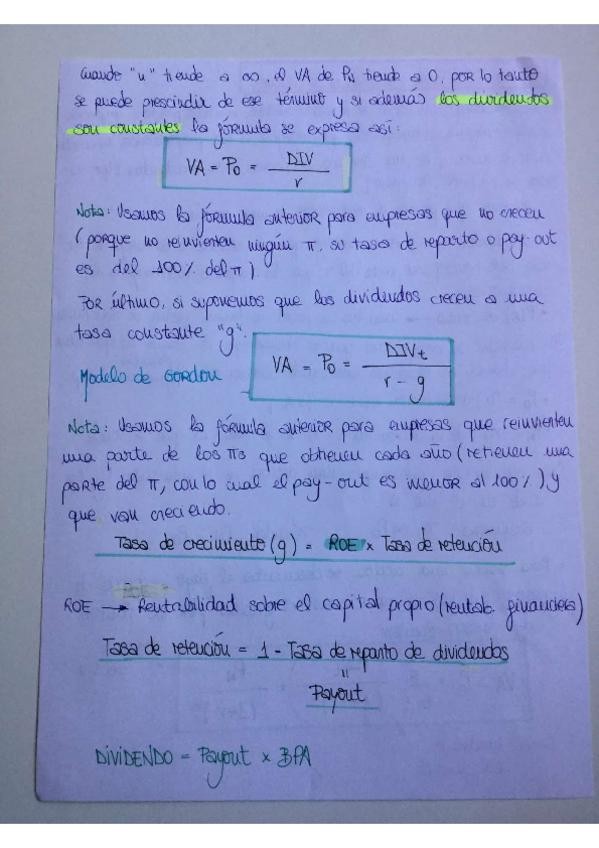 Cuando "n" tiende a ∞, el VA de Pn tiende a 0, por lo tanto
se puede prescindir de ese término y si además los dividendos
son constantes la fórmula se expresa así:
VA = P0 = DIV / r
Nota: Usamos la fórmula anterior para empresas que no crecen
(porque no reinvierten ningún π, su tasa de reparto o pay-out
es del 100% del π).
Por último, si suponemos que los dividendos crecen a una
tasa constante "g".
Modelo de GORDON
VA = P0 = DIVt / r - g
Nota: Usamos la fórmula anterior para empresas que reinvierten
una parte de los πs que obtienen cada año (retienen una
parte del π, con lo cual el pay-out es menor al 100%), y
que van creciendo.
Tasa de crecimiento (g) = ROE x Tasa de retención
ROE → Rentabilidad sobre el capital propio (rentab. financiera)
Tasa de retención = 1 - Tasa de reparto de dividendos
=
Payout
DIVIDENDO = Payout x BPA